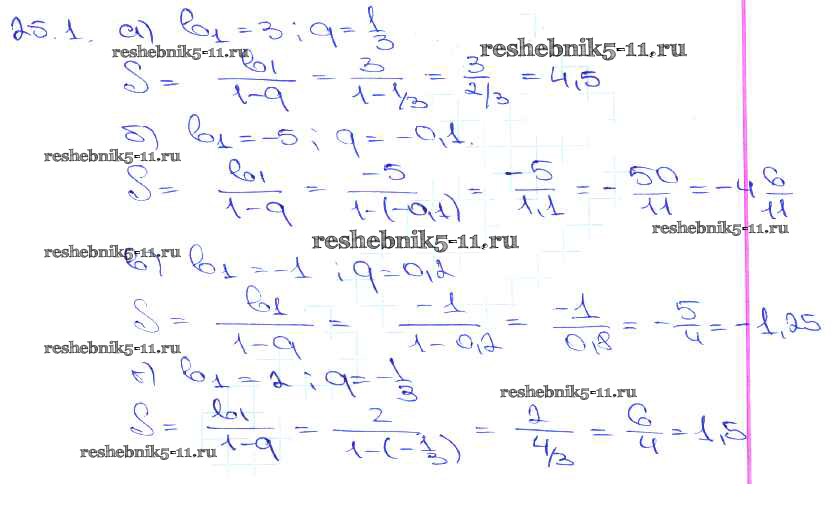 25.1. а) b₁ = 3 ; q = 1/3
reshebnik5-11.ru reshebnik5-11.ru
S = b₁/(1-q) = 3/(1-1/3) = 3/(2/3) = 4,5
б) b₁ = -5 ; q = -0,1.
reshebnik5-11.ru
S = b₁/(1-q) = -5/(1-(-0,1)) = -5/1,1 = -50/11 = -4 6/11
reshebnik5-11.ru
reshebnik5-11.ru
reshebnik5-11.ru
в) b₁ = -1 ; q = 0,2
S = b₁/(1-q) = -1/(1-0,2) = -1/0,8 = -5/4 = -1,25
reshebnik5-11.ru
г) b₁ = 2 ; q = -1/3
reshebnik5-11.ru
S = b₁/(1-q) = 2/(1-(-1/3)) = 2/(4/3) = 6/4 = 1,5
reshebnik5-11.ru